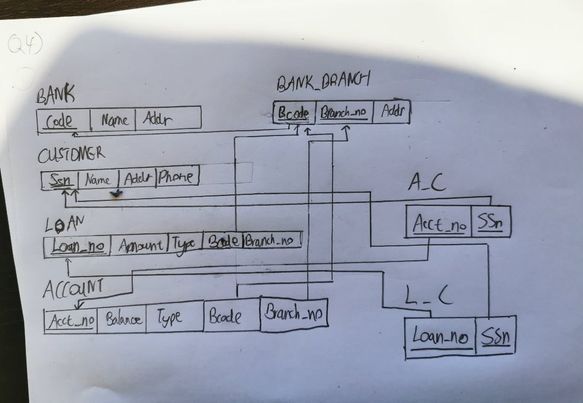 Q4)
BANK
Code Name Addr
BANK_BRANCH
Bcode Branch_no Addr
CUSTOMER
Ssn Name Addr Phone
A_C
Acct_no SSn
LOAN
Loan_no Amount Type Bcode Branch_no
ACCOUNT
Acct_no Balance Type Bcode Branch_no
L_C
Loan_no SSn